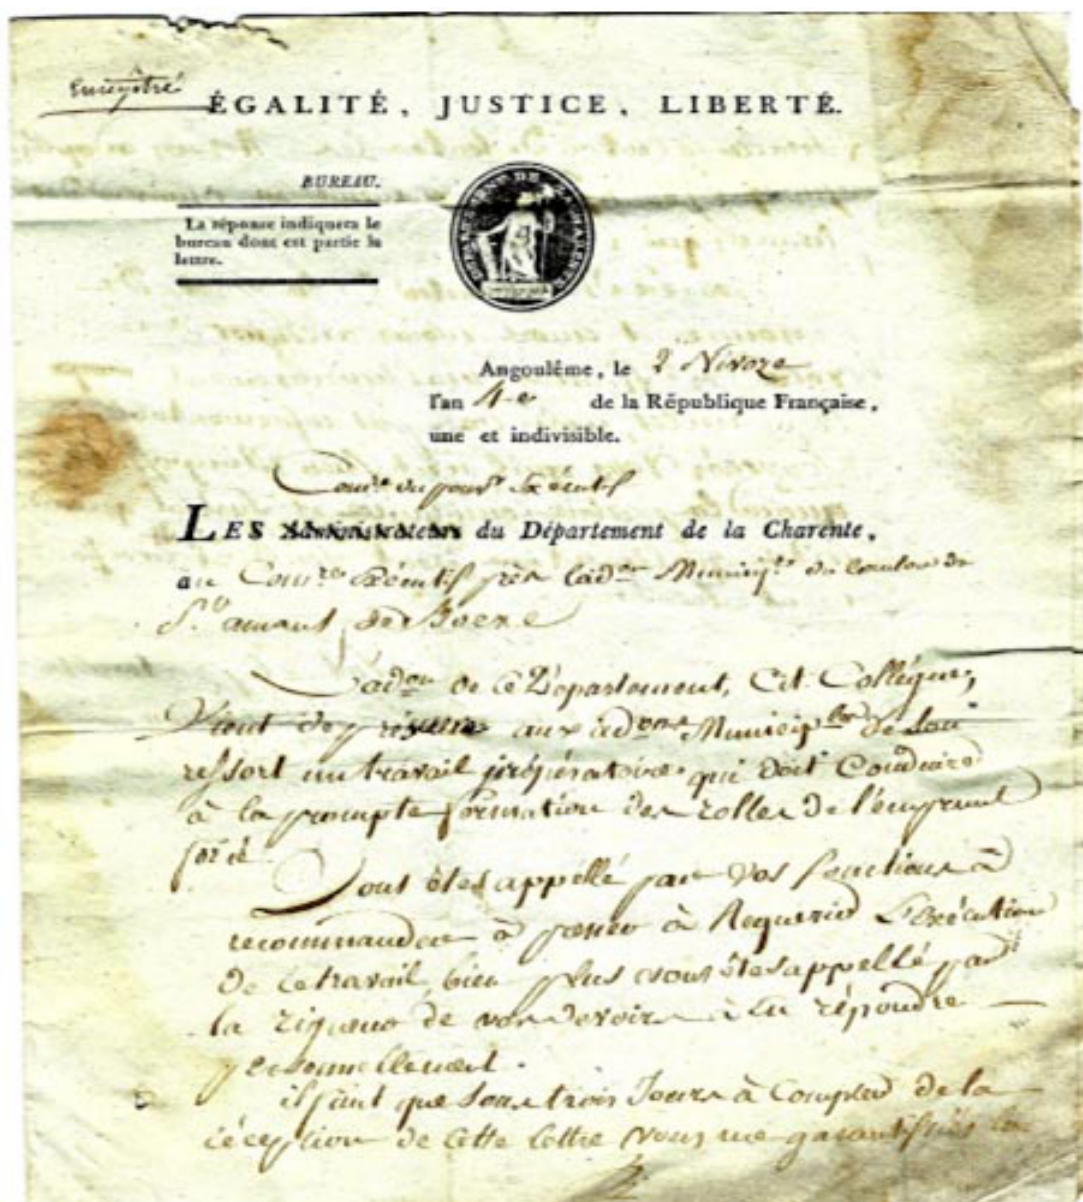 Enregistré
ÉGALITÉ, JUSTICE, LIBERTÉ.
BUREAU.
La réponse indiquera le
bureau dont est partie la
lettre.
DEPARTEMENT DE LA CHARENTE
Angoulême, le 2 Nivoze
l'an 4e de la République Française,
une et indivisible.
Comre du pouvr Exécutif
LES Administrateurs du Département de la Charente,
au Comre Exécutif près l'adon Municiple du Canton de
St. amant de Boexe
L'adon de ce Département, Cit. Collégue,
Vient de prescrire aux adons Municiples de son
ressort un travail préparatoire qui doit Conduire
à la prompte formation des rolles de l'emprunt
forcé.
Vous êtes appellé par vos fonctions à
recommander à presser à Requerir L'exécution
de ce travail, bien plus vous êtes appellé par
la rigueur de vos devoirs à en répondre
personnellement.
il faut que sous trois Jours à Compter de la
réception de cette lettre vous me garantissiés la